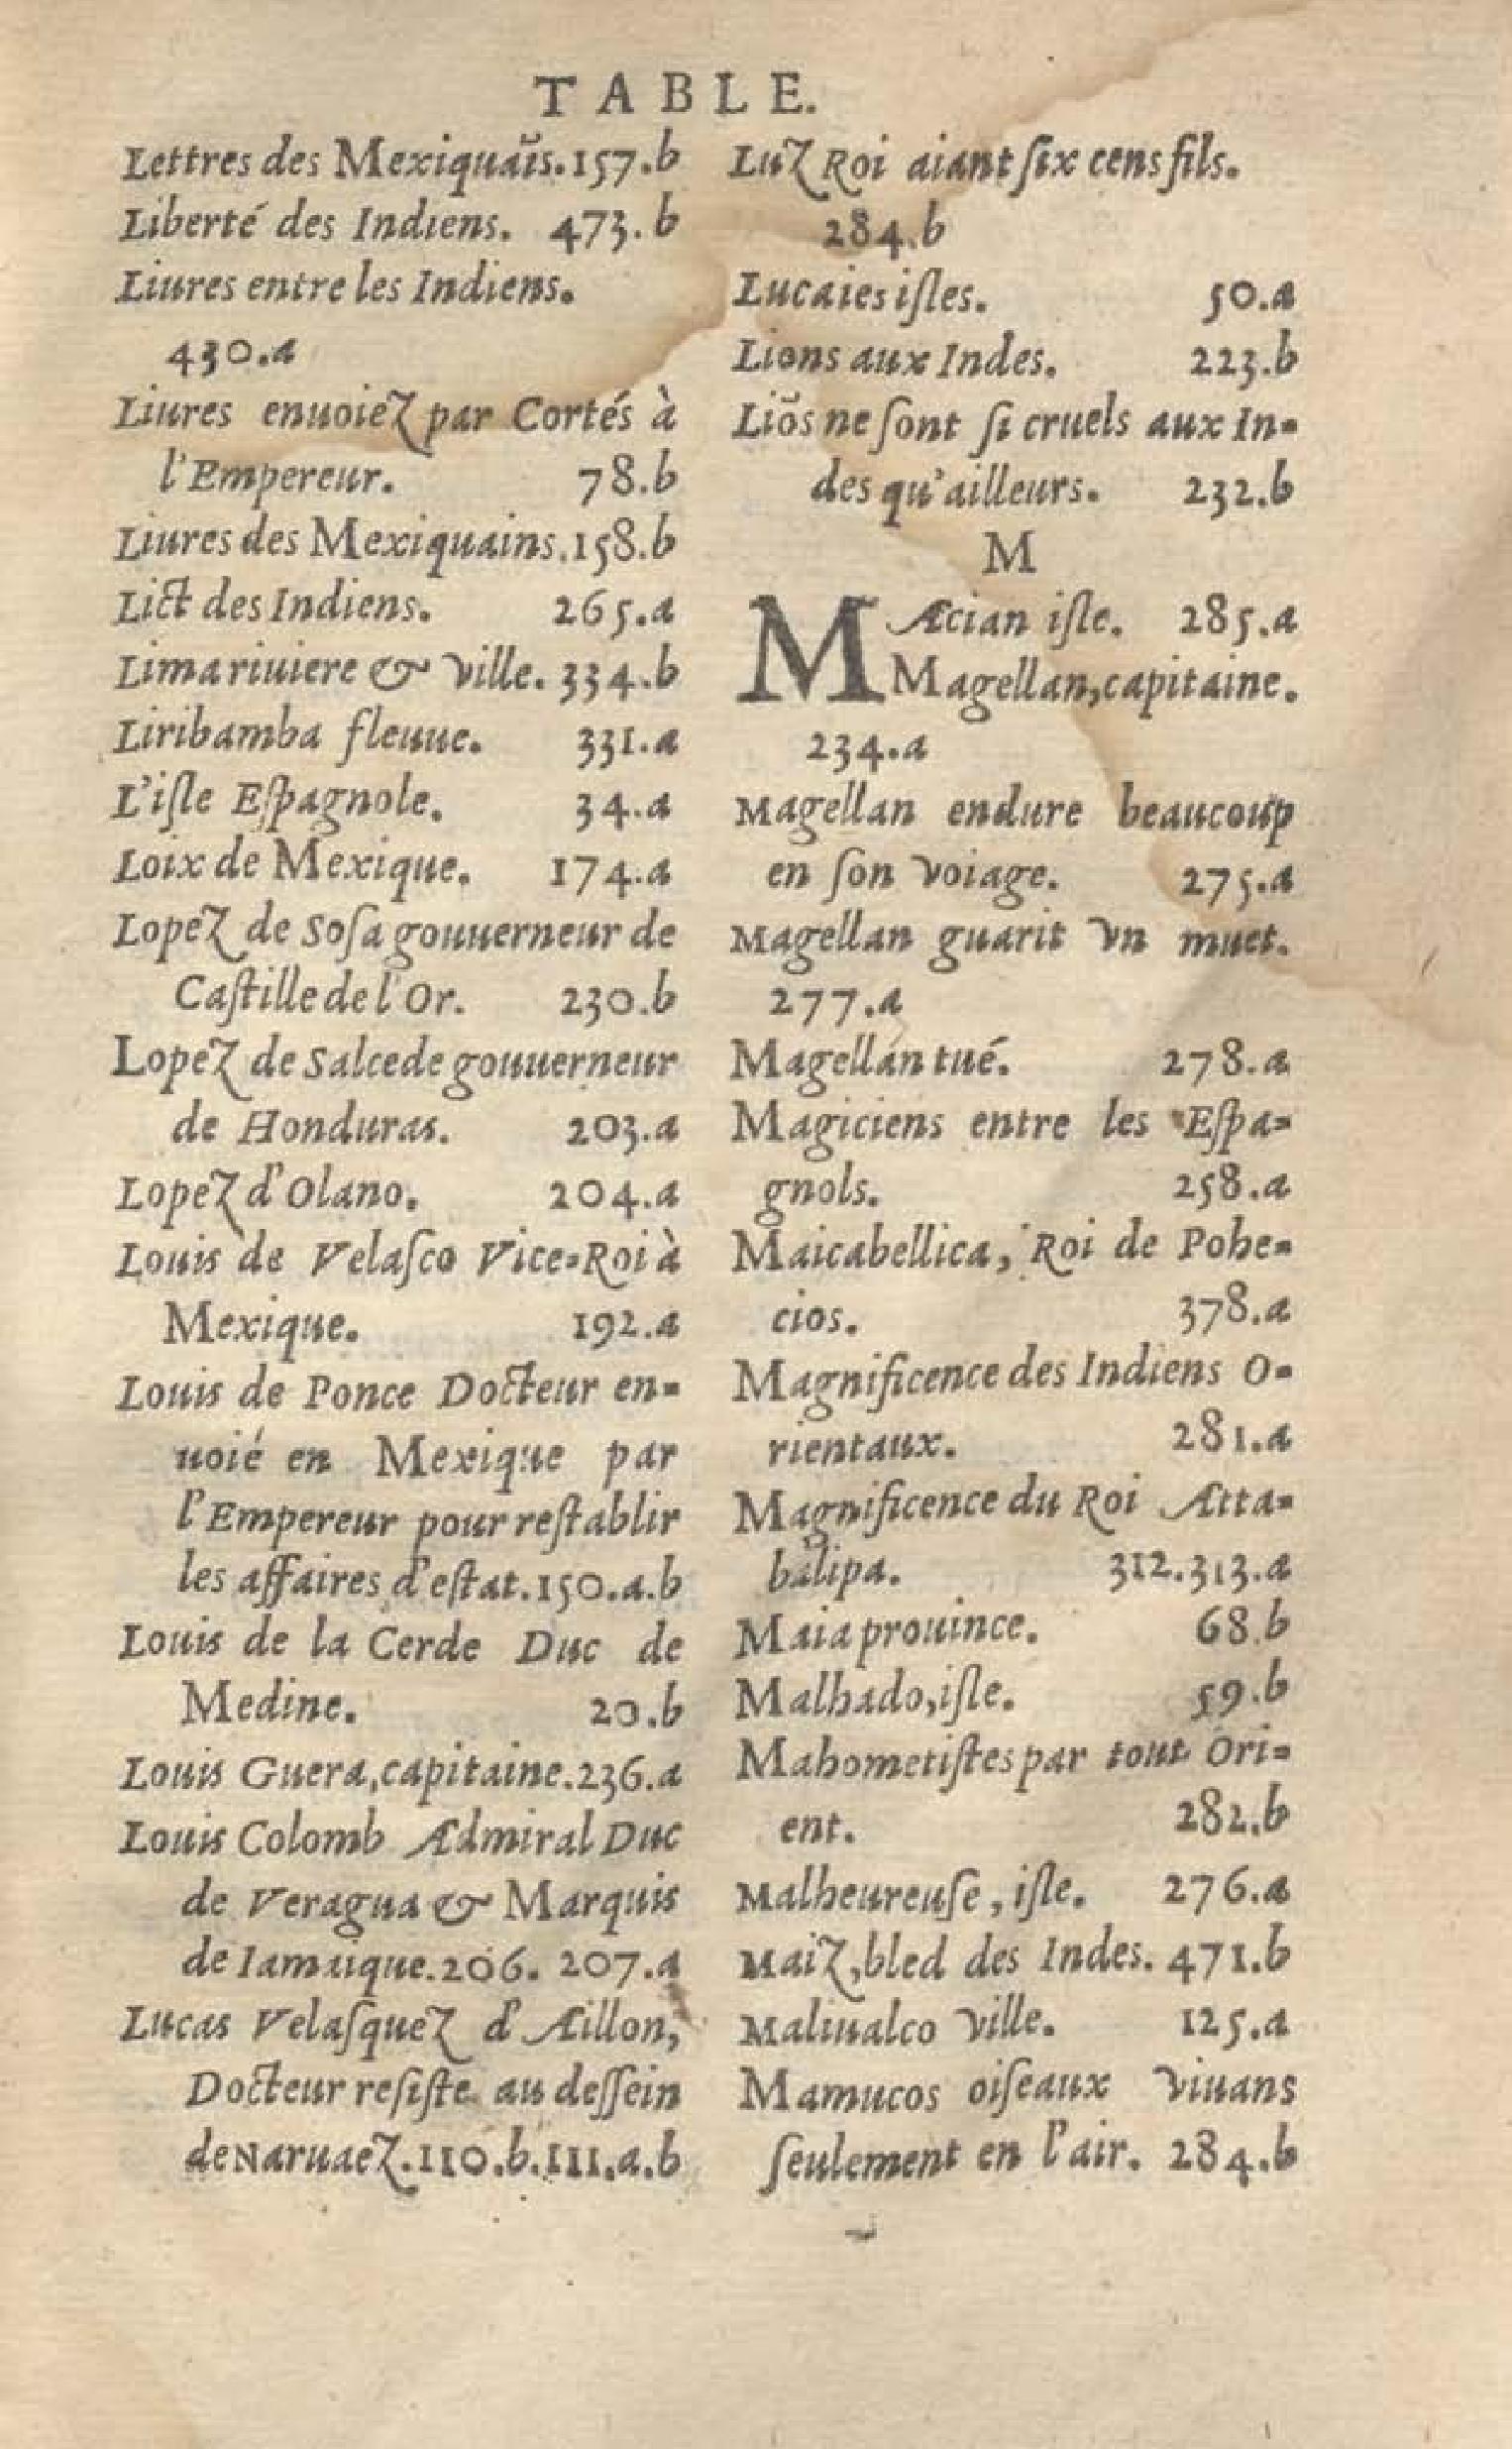 TABLE.
Lettres des Mexiquaĩs.157.b
Liberté des Indiens. 473.b
Liures entre les Indiens.
430.a
Liures enuoiez par Cortés à
l'Empereur. 78.b
Liures des Mexiquains.158.b
Lict des Indiens. 265.a
Lima riuiere & ville. 334.b
Liribamba fleuue. 331.a
L'iſle Eſpagnole. 34.a
Loix de Mexique. 174.a
Lopez de Soſa gouuerneur de
Caſtille de l'Or. 230.b
Lopez de Salcede gouuerneur
de Honduras. 203.a
Lopez d'Olano. 204.a
Louis de Velaſco Vice-Roi à
Mexique. 192.a
Louis de Ponce Docteur en-
uoié en Mexique par
l'Empereur pour reſtablir
les affaires d'eſtat.150.a.b
Louis de la Cerde Duc de
Medine. 20.b
Louis Guera, capitaine.236.a
Louis Colomb Admiral Duc
de Veragua & Marquis
de Iamaique.206. 207.a
Lucas Velaſquez d'Aillon,
Docteur reſiſte au deſſein
de Naruaez.110.b.111.a.b
Luz Roi aiant ſix cens fils.
284.b
Lucaies iſles. 50.a
Lions aux Indes. 223.b
Liõs ne ſont ſi cruels aux In-
des qu'ailleurs. 232.b
M
MAcian iſle. 285.a
Magellan, capitaine.
234.a
Magellan endure beaucoup
en ſon voiage. 275.a
Magellan guarit vn muet.
277.a
Magellan tué. 278.a
Magiciens entre les Eſpa-
gnols. 258.a
Maicabellica, Roi de Pohe-
cios. 378.a
Magnificence des Indiens O-
rientaux. 281.a
Magnificence du Roi Atta-
balipa. 312.313.a
Maia prouince. 68.b
Malhado, iſle. 59.b
Mahometiſtes par tout Ori-
ent. 282.b
Malheureuſe, iſle. 276.a
Maiz, bled des Indes. 471.b
Maliualco ville. 125.a
Mamucos oiſeaux viuans
ſeulement en l'air. 284.b